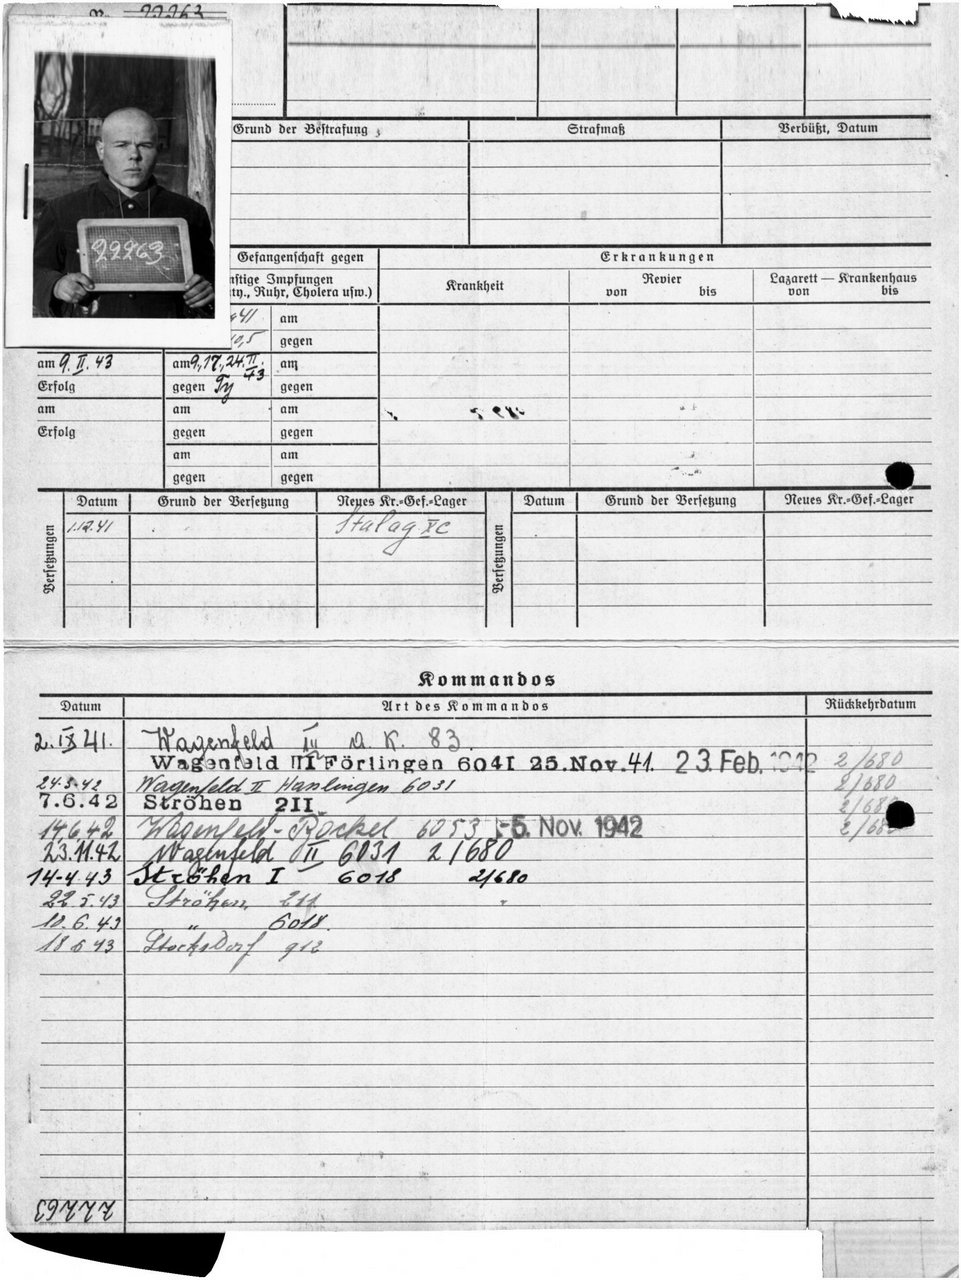 22263
Grund der Bestrafung
Strafmaß
Verbüßt, Datum
22263
Gefangenschaft gegen
Erkrankungen
Impfungen
Ruhr, Cholera usw.)
Krankheit
Revier
von bis
Lazarett — Krankenhaus
von bis
41 am
gegen
am 9.II.43 am 9.,17.,24.II.43 am
Erfolg gegen Ty gegen
am am am
Erfolg gegen gegen
am am
gegen gegen
Versetzungen
Datum Grund der Versetzung Neues Kr.-Gef.-Lager
1.12.41 Stalag XC
Versetzungen
Datum Grund der Versetzung Neues Kr.-Gef.-Lager
Kommandos
Datum Art des Kommandos Rückkehrdatum
2.IX 41. Wagenfeld III a. K. 83.
Wagenfeld III Förlingen 6041 25.Nov.41. 23. Feb. 1942 2/680
24-3-42 Wagenfeld II Haslingen 6031 2/680
7.6.42 Ströhen 211 2/680
14.6.42 Wagenfeld-Bockel 6053 -5. Nov. 1942 2/680
23.11.42 Wagenfeld II 6031 2/680
14-4-43 Ströhen I 6018 2/680
22.5.43 Ströhen 211
10.6.43 " 6018.
18 6 43 Stocksdorf 912
22263